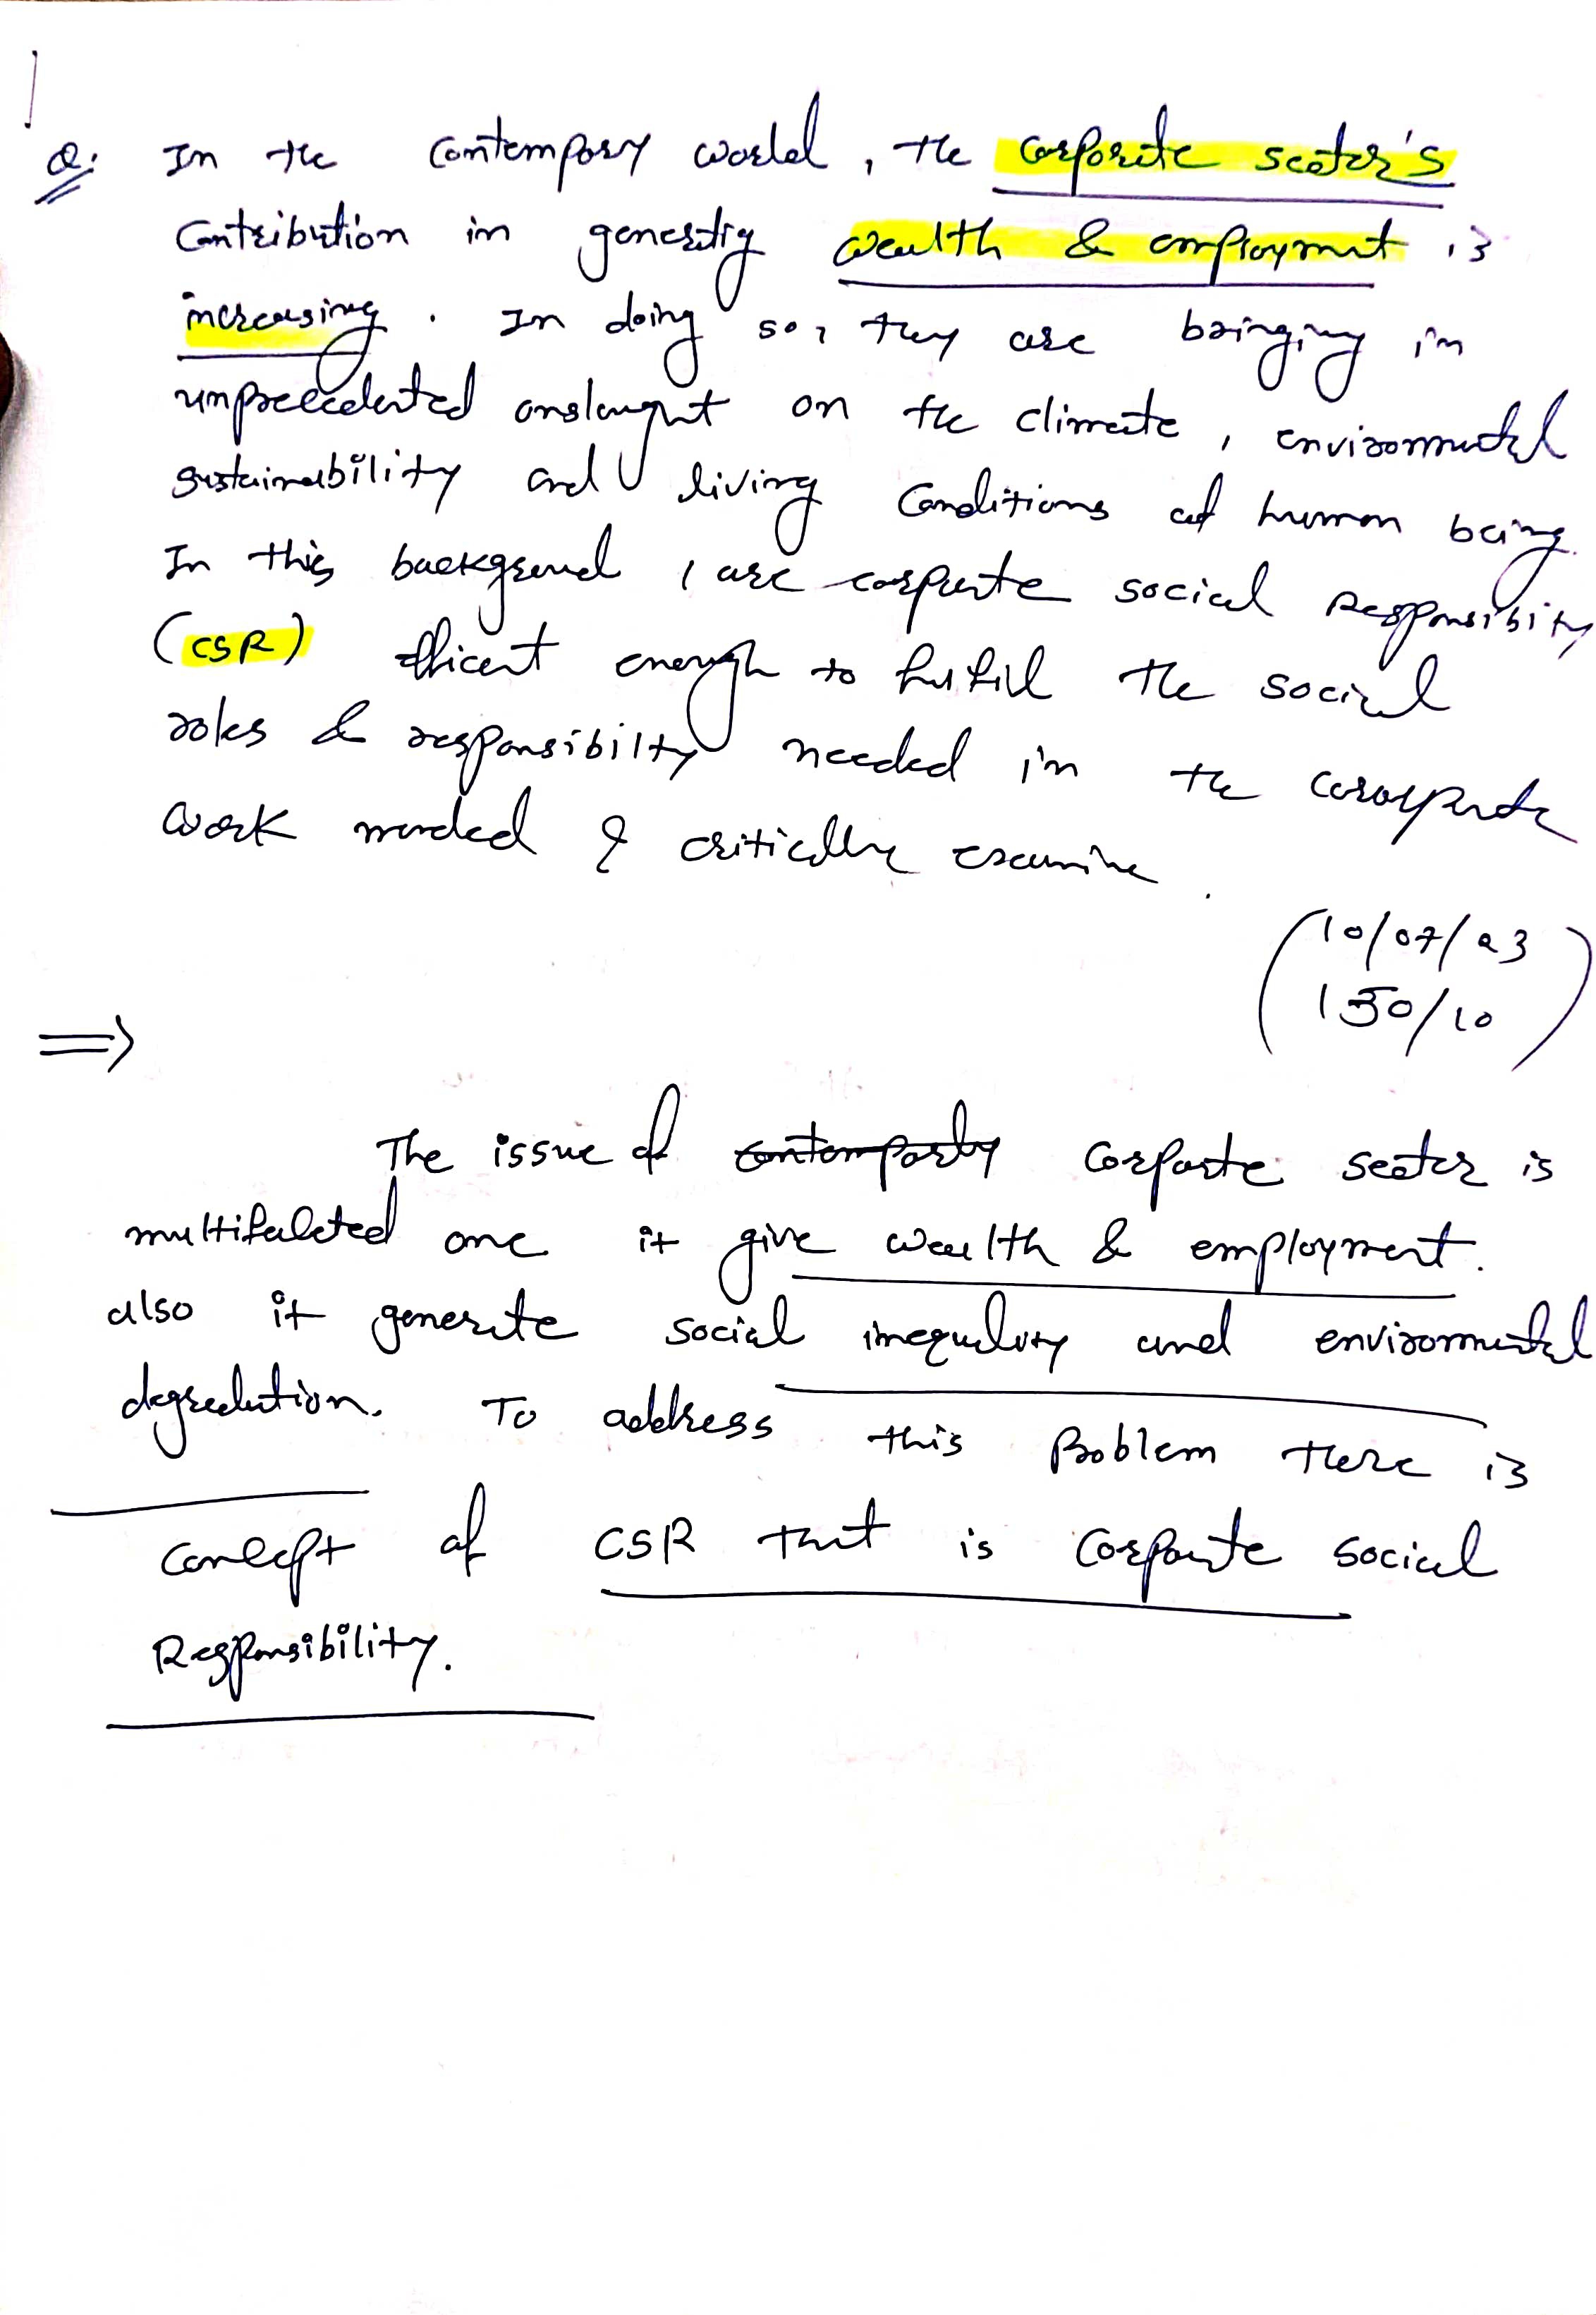 Q. In the contempory world, the corporate sector's
contribution in generating wealth & employment is
increasing. In doing so, they are bringing in
unprecedented onslaught on the climate, environmental
sustainability and living conditions of human being.
In this background, are corporate social responsibity
(CSR) efficent enough to fulfill the social
roles & responsibilty needed in the
work critically examine.
(10/07/23
150/10)
⇒
The issue of contemporby corporate sector is
multifaceted one it give wealth & employment.
also it generate social inequality and environmental
degradation. To address this Problem there is
concept of CSR that is Corporate social
Responsibility.